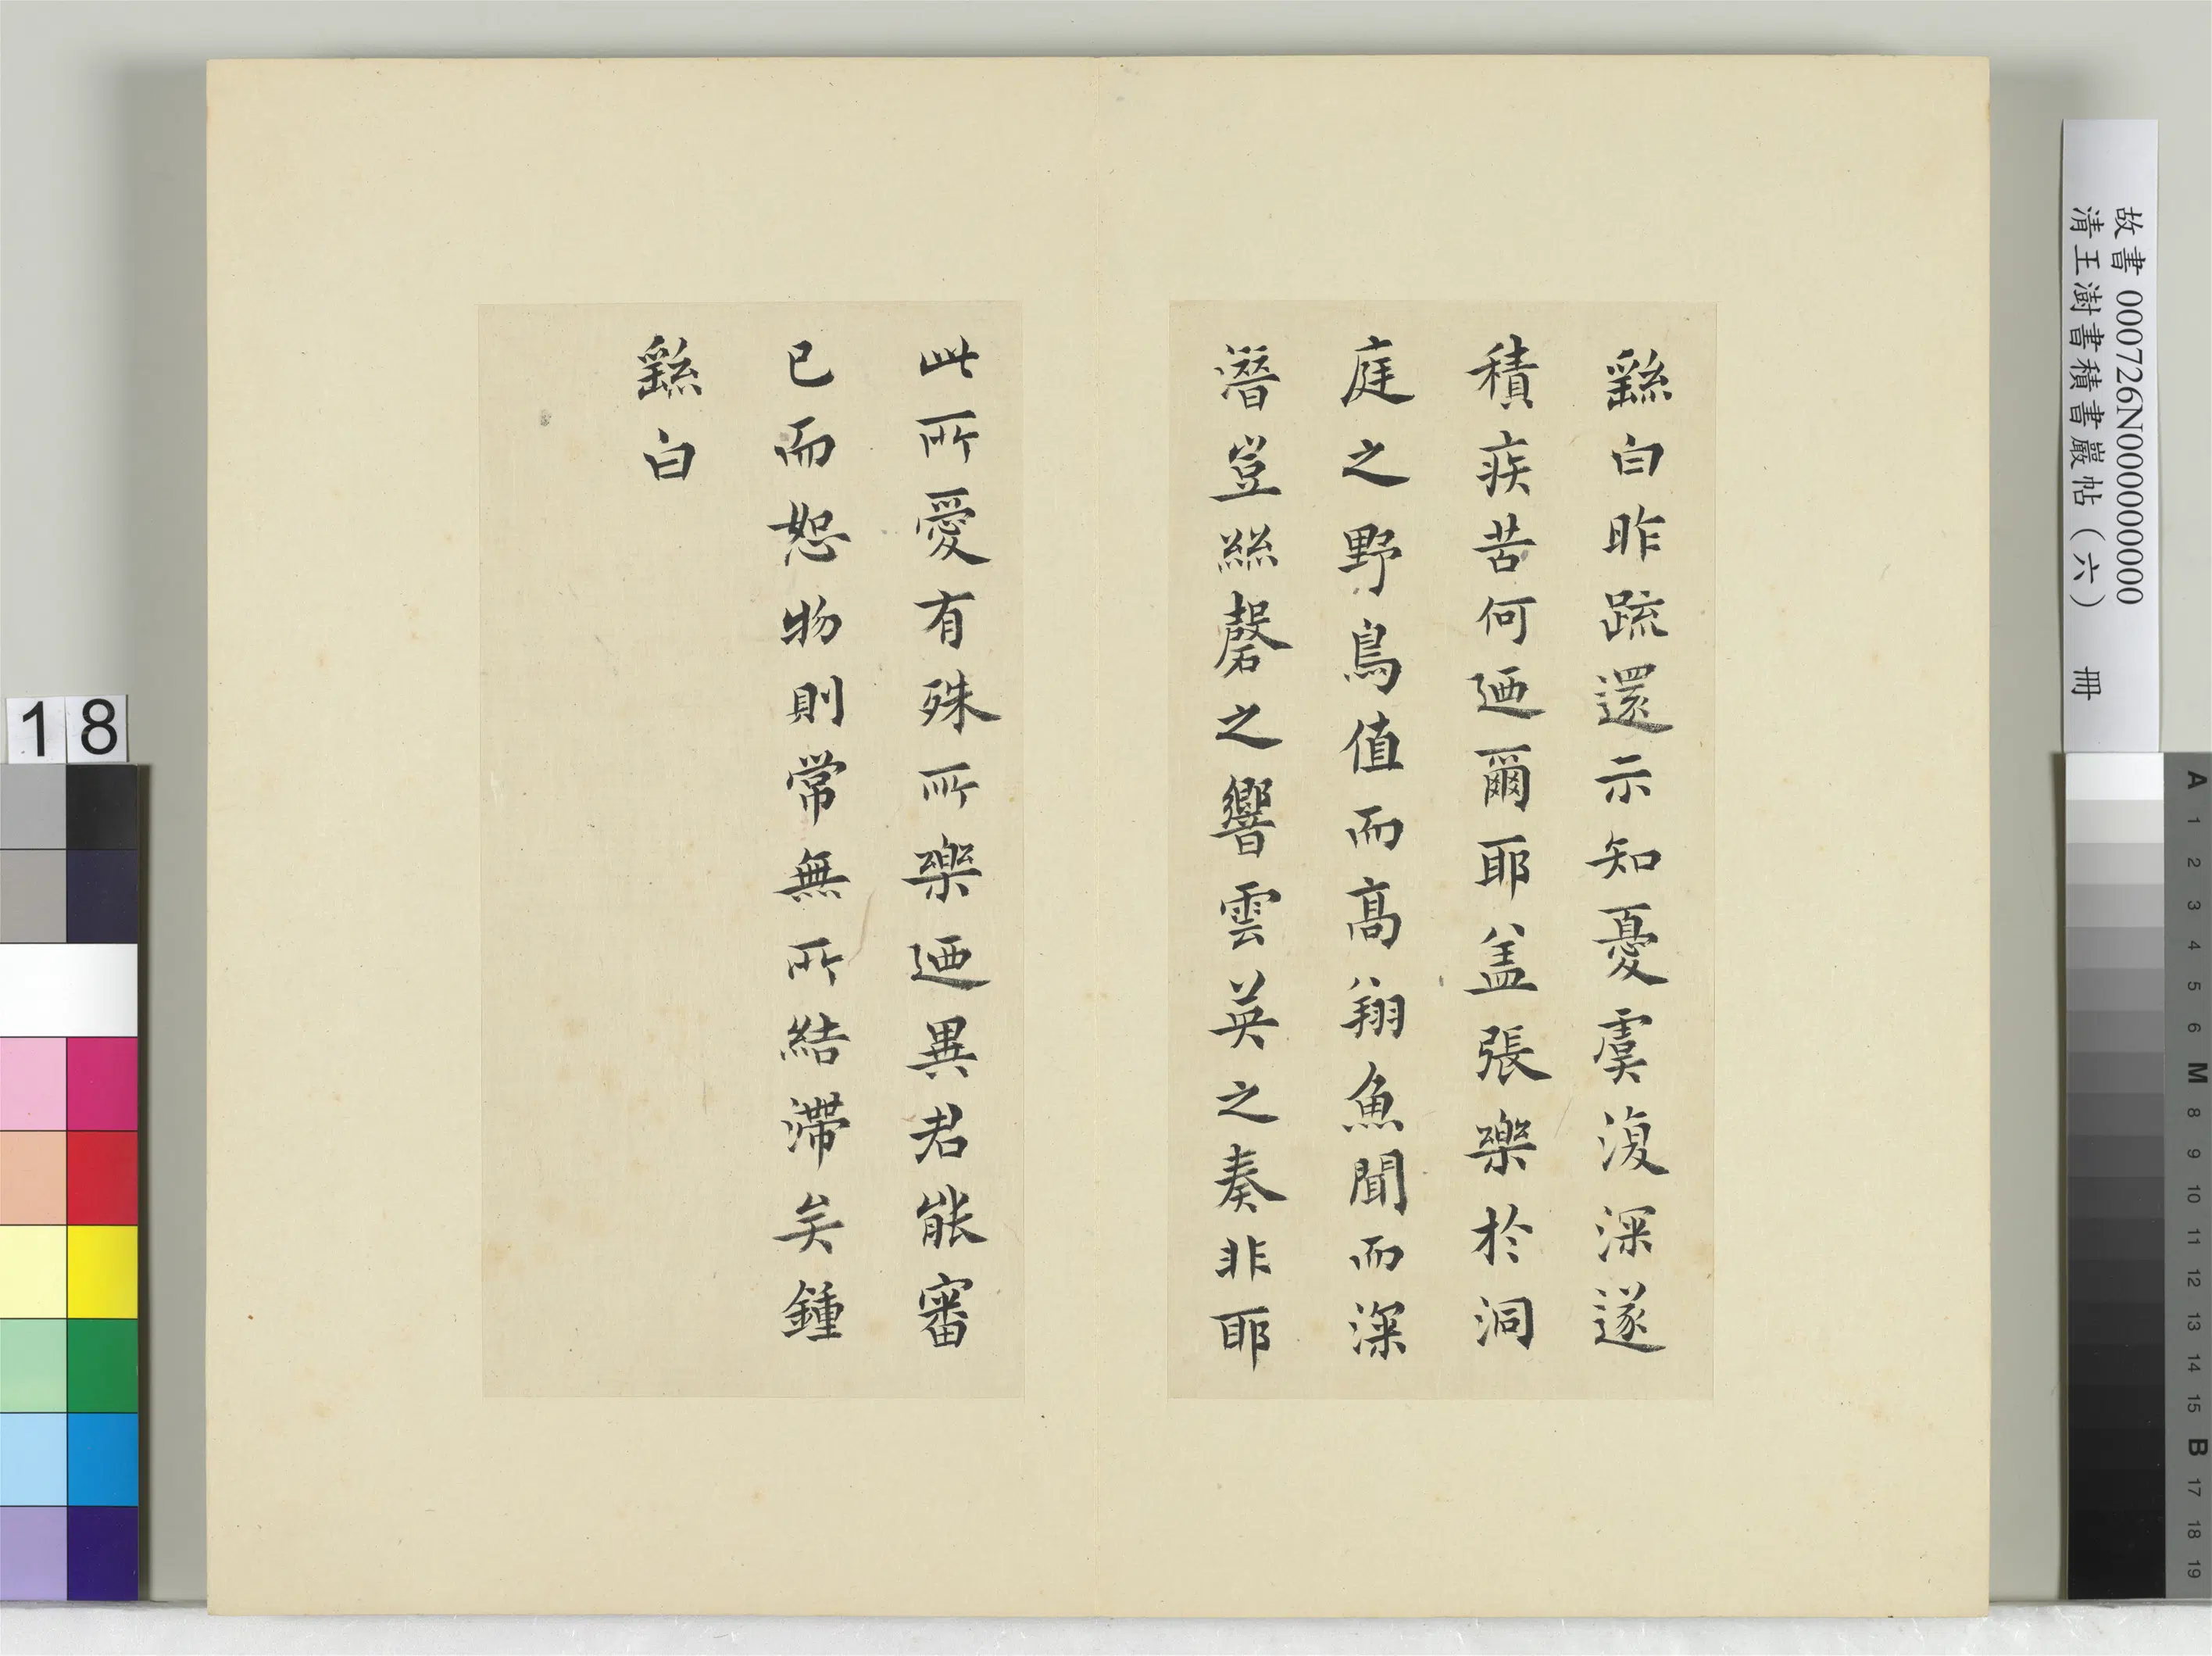 繇白昨疏還示知憂虞復深遂
積疾苦何迺爾耶盖張樂於洞
庭之野鳥值而高翔魚聞而深
潛豈絲磬之響雲英之奏非耶
此所愛有殊所樂迺異君能審
已而恕物則常無所結滯矣鍾
繇白
故書 000726N000000000
清王澍書積書巖帖（六） 冊
18
A 1 2 3 4 5 6 M 8 9 10 11 12 13 14 15 B 17 18 19